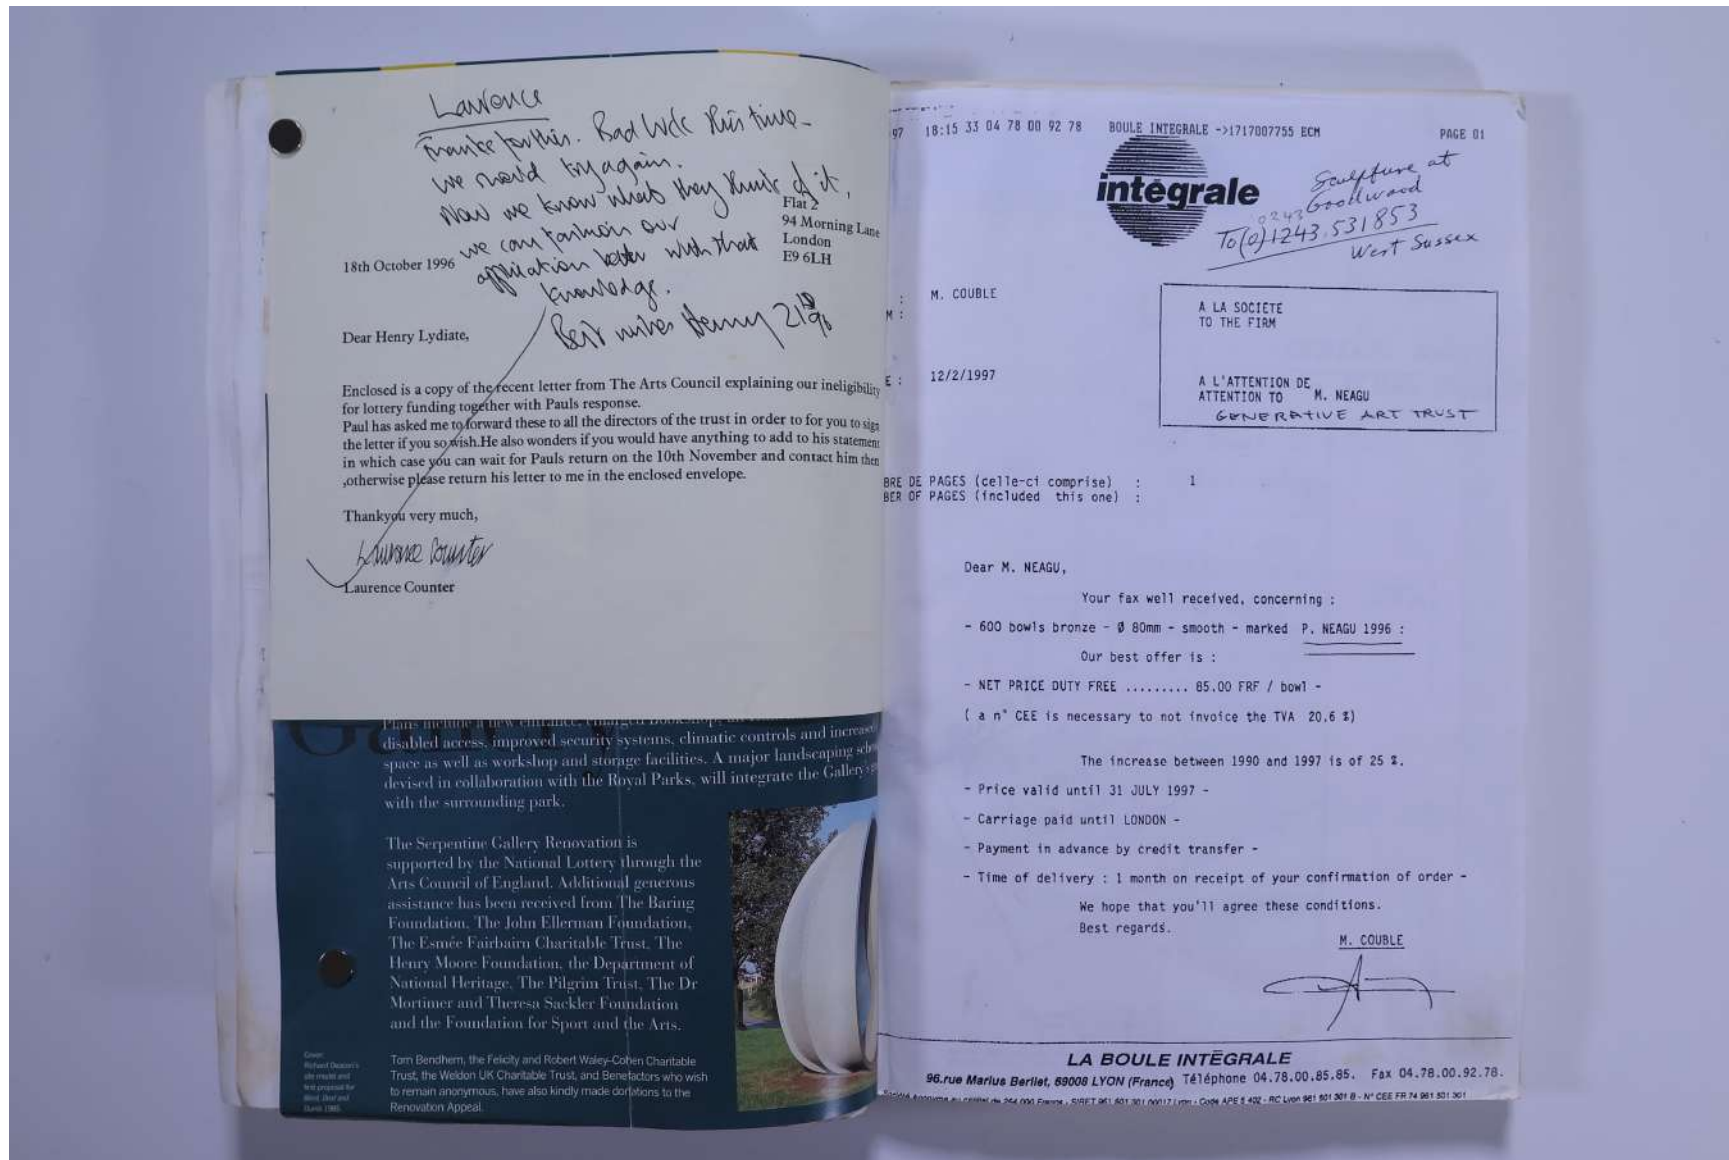 Lawrence
Thanks for this. Bad luck this time –
we should try again.
Now we know what they think of it,
we can fashion our
application better with that
knowledge.
Best wishes Henry
Flat 2
94 Morning Lane
London
E9 6LH
18th October 1996
Dear Henry Lydiate,
Enclosed is a copy of the recent letter from The Arts Council explaining our ineligibility
for lottery funding together with Pauls response.
Paul has asked me to forward these to all the directors of the trust in order to for you to sign
the letter if you so wish.He also wonders if you would have anything to add to his statement
in which case you can wait for Pauls return on the 10th November and contact him then
,otherwise please return his letter to me in the enclosed envelope.
Thankyou very much,
Laurence Counter
Laurence Counter
Gallery
Plans include a new entrance, enlarged bookshop,
disabled access, improved security systems, climatic controls and increased
space as well as workshop and storage facilities. A major landscaping
devised in collaboration with the Royal Parks, will integrate the Gallery's
with the surrounding park.
The Serpentine Gallery Renovation is
supported by the National Lottery through the
Arts Council of England. Additional generous
assistance has been received from The Baring
Foundation, The John Ellerman Foundation,
The Esmée Fairbairn Charitable Trust, The
Henry Moore Foundation, the Department of
National Heritage, The Pilgrim Trust, The Dr
Mortimer and Theresa Sackler Foundation
and the Foundation for Sport and the Arts.
Tom Bendhem, the Felicity and Robert Waley-Cohen Charitable
Trust, the Weldon UK Charitable Trust, and Benefactors who wish
to remain anonymous, have also kindly made donations to the
Renovation Appeal.
Cover:
Richard Deacon's
site model and
first proposal for
97 18:15 33 04 78 00 92 78 BOULE INTEGRALE ->1717007755 ECM PAGE 01
intēgrale
Sculpture at
Goodwood
0243
To (0)1243.531853
West Sussex
: M. COUBLE
M :
E : 12/2/1997
A LA SOCIETE
TO THE FIRM
A L'ATTENTION DE
ATTENTION TO M. NEAGU
GENERATIVE ART TRUST
BRE DE PAGES (celle-ci comprise) : 1
BER OF PAGES (included this one) :
Dear M. NEAGU,
Your fax well received, concerning :
- 600 bowls bronze - Ø 80mm - smooth - marked P. NEAGU 1996 :
Our best offer is :
- NET PRICE DUTY FREE ......... 85.00 FRF / bowl -
( a n° CEE is necessary to not invoice the TVA 20,6 %)
The increase between 1990 and 1997 is of 25 %.
- Price valid until 31 JULY 1997 -
- Carriage paid until LONDON -
- Payment in advance by credit transfer -
- Time of delivery : 1 month on receipt of your confirmation of order -
We hope that you'll agree these conditions.
Best regards.
M. COUBLE
LA BOULE INTĒGRALE
96.rue Marius Berliet, 69008 LYON (France) Téléphone 04.78.00.85.85. Fax 04.78.00.92.78.